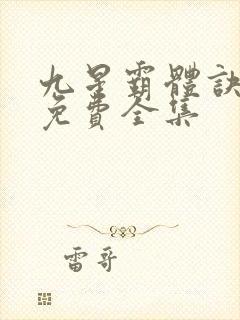 九星霸體訣
免費全集
雷哥